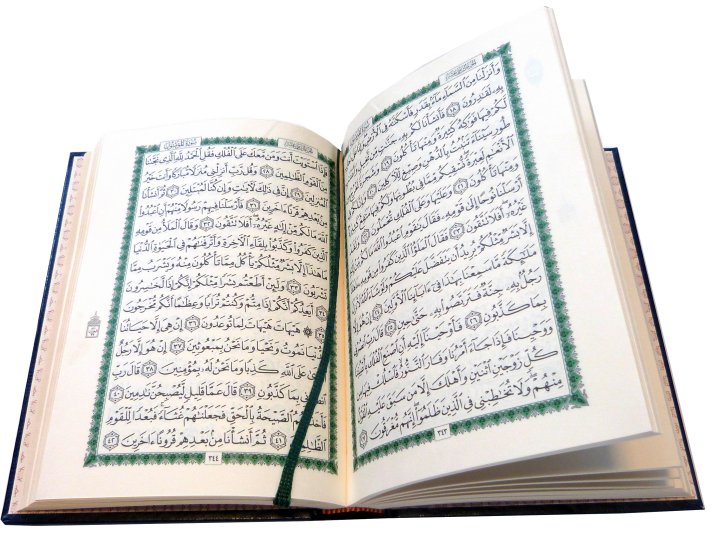 وَأَنزَلْنَا مِنَ ٱلسَّمَآءِ مَآءًۢ بِقَدَرٍ فَأَسْكَنَّٰهُ فِى ٱلْأَرْضِ
بِهِۦ لَقَٰدِرُونَ ١٨ فَأَنشَأْنَا لَكُم بِهِۦ جَنَّٰتٍ مِّن
لَّكُمْ فِيهَا فَوَٰكِهُ كَثِيرَةٌ وَمِنْهَا تَأْكُلُونَ ١٩
طُورِ سَيْنَآءَ تَنۢبُتُ بِٱلدُّهْنِ وَصِبْغٍ لِّلْءَاكِلِينَ ٢٠
ٱلْأَنْعَٰمِ لَعِبْرَةً نُّسْقِيكُم مِّمَّا فِى بُطُونِهَا وَلَكُمْ فِيهَا
وَمِنْهَا تَأْكُلُونَ ٢١ وَعَلَيْهَا وَعَلَى ٱلْفُلْكِ تُحْمَلُونَ
أَرْسَلْنَا نُوحًا إِلَىٰ قَوْمِهِۦ فَقَالَ يَٰقَوْمِ ٱعْبُدُوا۟ ٱللَّهَ مَا لَكُم
غَيْرُهُۥٓ أَفَلَا تَتَّقُونَ ٢٣ فَقَالَ ٱلْمَلَؤُا۟ ٱلَّذِينَ كَفَرُوا۟ مِن قَوْمِهِۦ
إِلَّا بَشَرٌ مِّثْلُكُمْ يُرِيدُ أَن يَتَفَضَّلَ عَلَيْكُمْ
مَلَٰٓئِكَةً مَّا سَمِعْنَا بِهَٰذَا فِىٓ ءَابَآئِنَا ٱلْأَوَّلِينَ
رَجُلٌۢ بِهِۦ جِنَّةٌ فَتَرَبَّصُوا۟ بِهِۦ حَتَّىٰ حِينٍ
بِمَا كَذَّبُونِ ٢٦ فَأَوْحَيْنَآ إِلَيْهِ أَنِ ٱصْنَعِ ٱلْفُلْكَ
وَوَحْيِنَا فَإِذَا جَآءَ أَمْرُنَا وَفَارَ ٱلتَّنُّورُ فَٱسْلُكْ فِيهَا مِن
كُلٍّ زَوْجَيْنِ ٱثْنَيْنِ وَأَهْلَكَ إِلَّا مَن سَبَقَ عَلَيْهِ ٱلْقَوْلُ
مِنْهُمْ وَلَا تُخَٰطِبْنِى فِى ٱلَّذِينَ ظَلَمُوٓا۟ إِنَّهُم مُّغْرَقُونَ ٢٧
٣٤٣
فَإِذَا ٱسْتَوَيْتَ أَنتَ وَمَن مَّعَكَ عَلَى ٱلْفُلْكِ فَقُلِ ٱلْحَمْدُ لِلَّهِ ٱلَّذِى نَجَّىٰنَا
مِنَ ٱلْقَوْمِ ٱلظَّٰلِمِينَ ٢٨ وَقُل رَّبِّ أَنزِلْنِى مُنزَلًا مُّبَارَكًا وَأَنتَ خَيْرُ
ٱلْمُنزِلِينَ ٢٩ إِنَّ فِى ذَٰلِكَ لَءَايَٰتٍ وَإِن كُنَّا لَمُبْتَلِينَ ٣٠ ثُمَّ أَنشَأْنَا
مِنۢ بَعْدِهِمْ قَرْنًا ءَاخَرِينَ ٣١ فَأَرْسَلْنَا فِيهِمْ رَسُولًا مِّنْهُمْ أَنِ ٱعْبُدُوا۟
ٱللَّهَ مَا لَكُم مِّنْ إِلَٰهٍ غَيْرُهُۥٓ أَفَلَا تَتَّقُونَ ٣٢ وَقَالَ ٱلْمَلَأُ مِن قَوْمِهِ
ٱلَّذِينَ كَفَرُوا۟ وَكَذَّبُوا۟ بِلِقَآءِ ٱلْءَاخِرَةِ وَأَتْرَفْنَٰهُمْ فِى ٱلْحَيَوٰةِ ٱلدُّنْيَا
مَا هَٰذَآ إِلَّا بَشَرٌ مِّثْلُكُمْ يَأْكُلُ مِمَّا تَأْكُلُونَ مِنْهُ وَيَشْرَبُ مِمَّا
تَشْرَبُونَ ٣٣ وَلَئِنْ أَطَعْتُم بَشَرًا مِّثْلَكُمْ إِنَّكُمْ إِذًا لَّخَٰسِرُونَ
٣٤ أَيَعِدُكُمْ أَنَّكُمْ إِذَا مِتُّمْ وَكُنتُمْ تُرَابًا وَعِظَٰمًا أَنَّكُم مُّخْرَجُونَ
٣٥ هَيْهَاتَ هَيْهَاتَ لِمَا تُوعَدُونَ ٣٦ إِنْ هِىَ إِلَّا حَيَاتُنَا
ٱلدُّنْيَا نَمُوتُ وَنَحْيَا وَمَا نَحْنُ بِمَبْعُوثِينَ ٣٧ إِنْ هُوَ إِلَّا رَجُلٌ
ٱفْتَرَىٰ عَلَى ٱللَّهِ كَذِبًا وَمَا نَحْنُ لَهُۥ بِمُؤْمِنِينَ ٣٨ قَالَ رَبِّ
ٱنصُرْنِى بِمَا كَذَّبُونِ ٣٩ قَالَ عَمَّا قَلِيلٍ لَّيُصْبِحُنَّ نَٰدِمِينَ ٤٠
فَأَخَذَتْهُمُ ٱلصَّيْحَةُ بِٱلْحَقِّ فَجَعَلْنَٰهُمْ غُثَآءً فَبُعْدًا لِّلْقَوْمِ
ٱلظَّٰلِمِينَ ٤١ ثُمَّ أَنشَأْنَا مِنۢ بَعْدِهِمْ قُرُونًا ءَاخَرِينَ ٤٢
٣٤٤